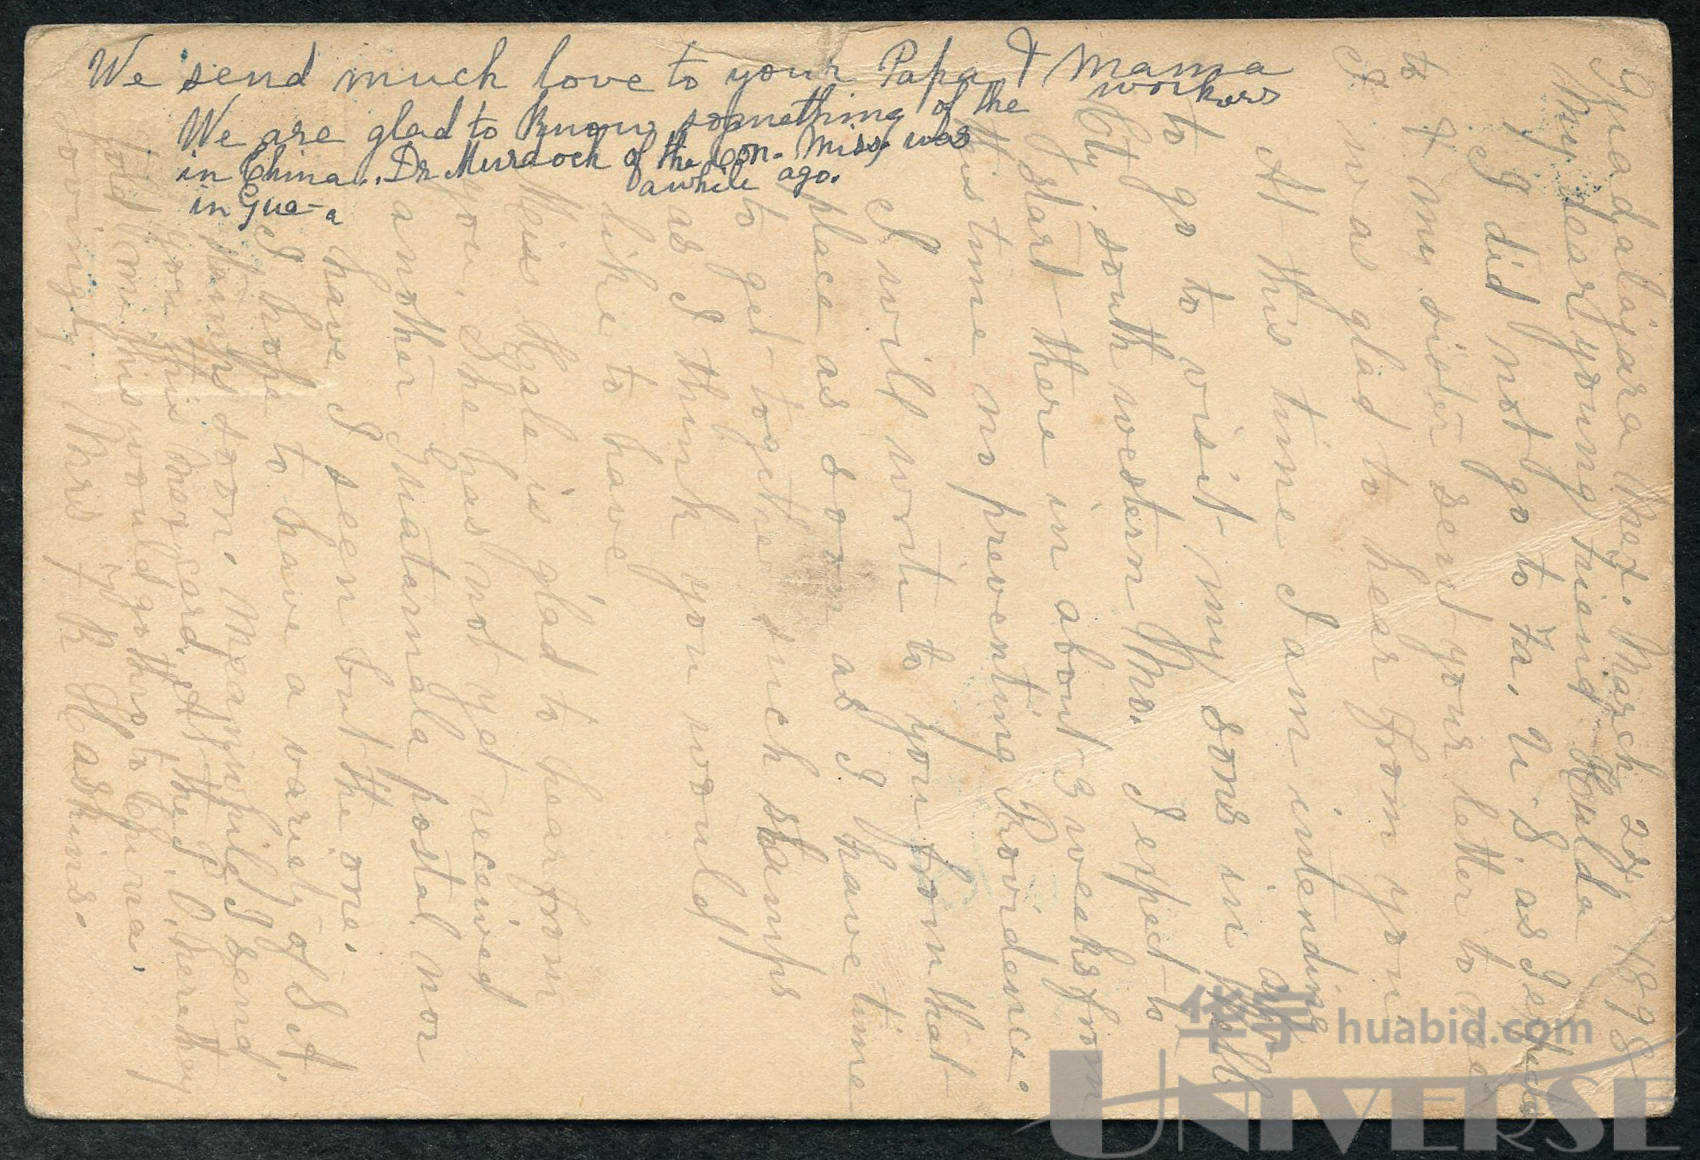 We send much love to your Papa & Mama
We are glad to know something of the workers
in China.. Dr Murdock of the Con. Miss. was
in Gue-a awhile ago.
Guadalajara Mex. March 28, 1898
My dear young friend Hulda
I did not go to Fa. U. S. as I
to & my sister sent your letter to me
I was glad to hear from you.
At this time I am intending
to go to visit my sons in
Cty. south western Mo. I expect to
start there in about 3 weeks from
this time no preventing Providence.
I will write to you from that
place as soon as I have time
to get together such stamps
as I think you would
like to have
Miss Hale is glad to hear from
you. She has not yet received
another Guatamala postal nor
have I seen but the one.
I hope to have a variety of S A.
stamps soon. Meanwhile I send
you this Mex card. At the P. O. here they
told me this would go thro to China.
Lovingly, Mrs F R Haskins.
华宇 huabid.com
UNIVERSE